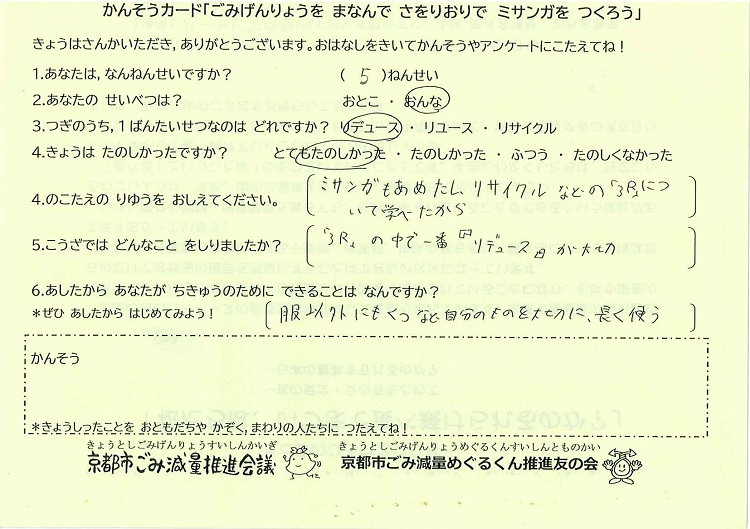 かんそうカード「ごみげんりょうを まなんで さをりおりで ミサンガを つくろう」
きょうはさんかいただき,ありがとうございます。おはなしをきいてかんそうやアンケートにこたえてね!
1.あなたは,なんねんせいですか? ( 5 )ねんせい
2.あなたの せいべつは? おとこ ・ おんな
3.つぎのうち,1ばんたいせつなのは どれですか? リデュース ・ リユース ・ リサイクル
4.きょうは たのしかったですか? とてもたのしかった ・ たのしかった ・ ふつう ・ たのしくなかった
ミサンガもあめたし、リサイクルなどの「3R」につ
4.のこたえの りゆうを おしえてください。
いて学べたから
5.こうざでは どんなこと をしりましたか? 「3R」の中で一番『リデュース』が大切
6.あしたから あなたが ちきゅうのために できることは なんですか?
*ぜひ あしたから はじめてみよう! 服以外にもくつなど自分のものを大切に、長く使う
かんそう
*きょうしったことを おともだちや かぞく,まわりの人たちに つたえてね!
きょうとしごみげんりょうすいしんかいぎ きょうとしごみげんりょうめぐるくんすいしんとものかい
京都市ごみ減量推進会議 京都市ごみ減量めぐるくん推進友の会